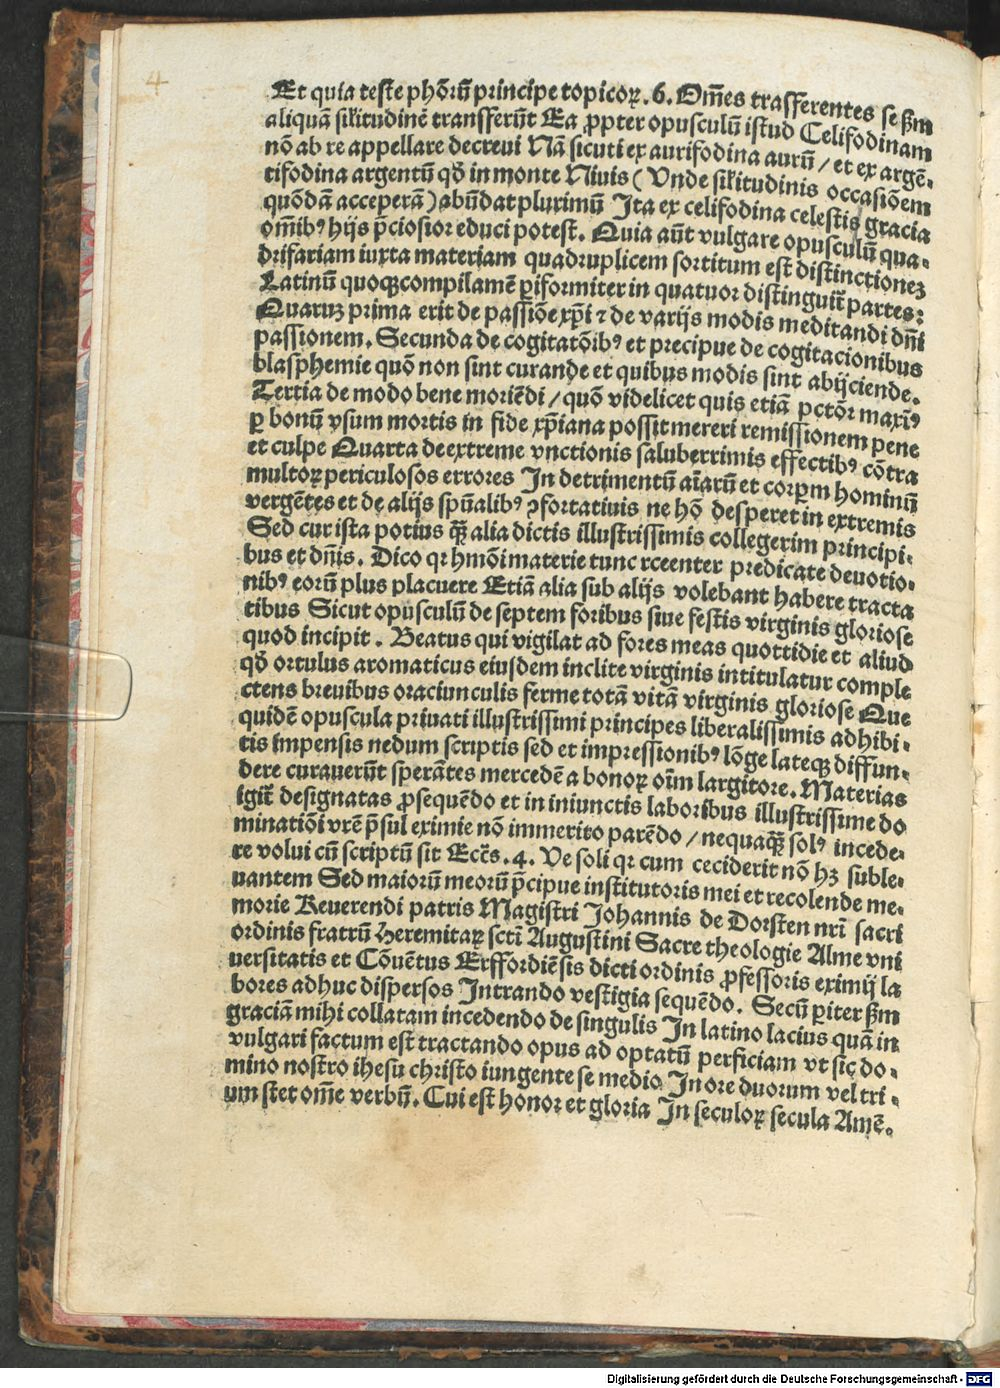 4
Et quia teste phõrũ principe topicoꝝ. 6. Om̃es trasferentes se ẞm
aliquã sil̃itudinẽ transferũt Ea ꝓpter opusculũ istud Celifodinam
nõ ab re appellare decreui Nã sicuti ex aurifodina aurũ / et ex argẽ⸗
tifodina argentũ qđ in monte Niuis ( Vnde sil̃itudinis occasiõem
quõdã acceperã ) abũdat plurimũ Ita ex celifodina celestis gracia
om̃ibꝰ hijs p̃ciosior educi potest. Quia aũt vulgare opusculũ qua⸗
drifariam iuxta materiam quadruplicem sortitum est distinctionez
Latinũ quoqꝫ compilamẽ ꝑiformiter in quatuor distinguit̃ partes:
Quaruz prima erit de passiõe xp̃i ⁊ de varijs modis meditandi dñi
passionem. Secunda de cogitatõibꝰ et precipue de cogitacionibus
blasphemie quõ non sint curande et quibus modis sint abijciende.
Tertia de modo bene moriẽdi / quõ videlicet quis etiã pctõr maxĩꝰ
ꝑ bonũ vsum mortis in fide xp̃iana possit mereri remissionem pene
et culpe Quarta de extreme vnctionis saluberrimis effectibꝰ cõtra
multoꝝ periculosos errores In detrimentũ aĩarũ et corꝑm hominũ
vergẽtes et de alijs spũalibꝰ ꝯfortatiuis ne hõ desperet in extremis
Sed cur ista potius q̃ꝫ alia dictis illustrissimis collegerim principi⸗
bus et dñis. Dico qꝛ hmõi materie tunc rceenter predicate deuotio⸗
nibꝰ eorũ plus placuere Etiã alia sub alijs volebant habere tracta
tibus Sicut opusculũ de septem foribus siue festis virginis gloriose
quod incipit. Beatus qui vigilat ad fores meas quottidie et aliud
qđ ortulus aromaticus eiusdem inclite virginis intitulatur comple
ctens breuibus oraciunculis ferme totã vitã virginis gloriose Que
quidẽ opuscula priuati illustrissimi principes liberalissimis adhibi⸗
tis impensis nedum scriptis sed et impressionibꝰ lõge lateqꝫ diffun⸗
dere curauerũt sperãtes mercedẽ a bonoꝝ oĩm largitore. Materias
igit̃ designatas ꝓsequẽdo et in iniunctis laboribus illustrissime do
minatiõi vrẽ p̃sul eximie nõ immerito parẽdo / nequaq̃ꝫ solꝰ incede⸗
re volui cũ scriptũ sit Ecc̃s. 4. Ve soli qꝛ cum ceciderit nõ hꝫ suble⸗
uantem Sed maiorũ meorũ p̃cipue institutoris mei et recolende me⸗
morie Reuerendi patris Magistri Johannis de Dorsten nrĩ sacri
ordinis fratrũ Heremitaꝝ sctĩ Augustini Sacre theologie Alme vni
uersitatis et Cõuẽtus Erffordiẽsis dicti ordinis ꝓfessoris eximij la
bores adhuc dispersos Intrando vestigia sequẽdo. Secũ ꝑiter ẞm
graciã mihi collatam incedendo de singulis In latino lacius quã in
vulgari factum est tractando opus ad optatũ perficiam vt sic do⸗
mino nostro ihesu christo iungente se medio In ore duorum vel tri⸗
um stet om̃e verbũ. Cui est honor et gloria In seculoꝝ secula Amẽ.
Digitalisierung gefördert durch die Deutsche Forschungsgemeinschaft - DFG